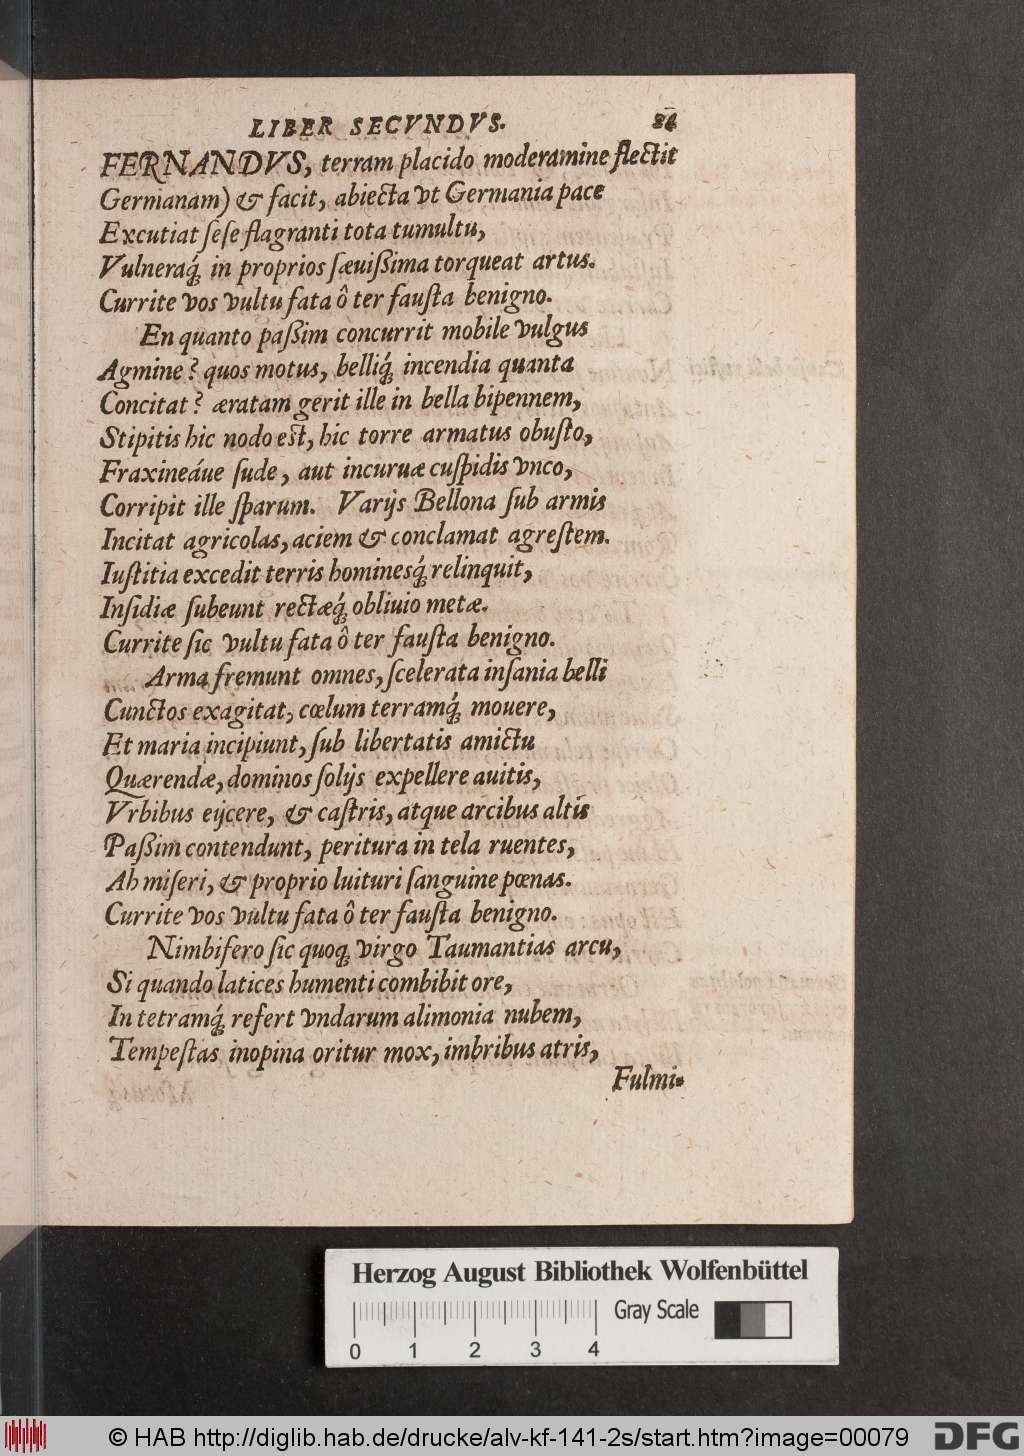 LIBER SECVNDVS. 84
FERNANDVS, terram placido moderamine flectit
Germanam) & facit, abiecta vt Germania pace
Excutiat ſeſe flagranti tota tumultu,
Vulneraq́; in proprios ſæuißima torqueat artus.
Currite vos vultu fata ô ter fauſta benigno.
En quanto paßim concurrit mobile vulgus
Agmine? quos motus, belliq́; incendia quanta
Concitat? æratam gerit ille in bella bipennem,
Stipitis hic nodo est, hic torre armatus obuſto,
Fraxineáue ſude, aut incuruæ cuſpidis vnco,
Corripit ille ſparum. Varijs Bellona ſub armis
Incitat agricolas, aciem & conclamat agreſtem.
Iuſtitia excedit terris hominesq́; relinquit,
Inſidiæ ſubeunt rectæq́; obliuio metæ.
Currite ſic vultu fata ô ter fauſta benigno.
Arma fremunt omnes, ſcelerata inſania belli
Cunctos exagitat, cœlum terramq́; mouere,
Et maria incipiunt, ſub libertatis amictu
Quærendæ, dominos ſolijs expellere auitis,
Vrbibus eijcere, & caſtris, atque arcibus altis
Paßim contendunt, peritura in tela ruentes,
Ah miſeri, & proprio luituri ſanguine pœnas.
Currite vos vultu fata ô ter fauſta benigno.
Nimbifero ſic quoq; virgo Taumantias arcu,
Si quando latices humenti combibit ore,
In tetramq́; refert vndarum alimonia nubem,
Tempeſtas inopina oritur mox, imbribus atris,
Fulmi-
Herzog August Bibliothek Wolfenbüttel
Gray Scale
0 1 2 3 4
© HAB http://diglib.hab.de/drucke/alv-kf-141-2s/start.htm?image=00079
DFG